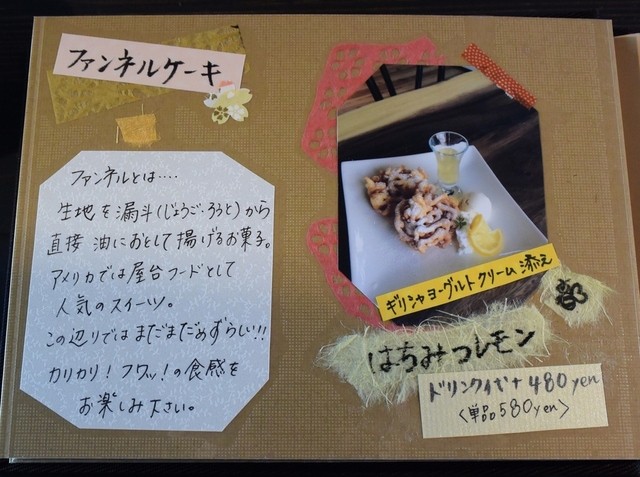 ファンネルケーキ
ファンネルとは‥‥
生地を漏斗(じょうご・ろうと)から
直接油におとして揚げるお菓子。
アメリカでは屋台フードとして
人気のスイーツ。
この辺りではまだまだめずらしい!!
カリカリ!フワッ!の食感を
お楽しみ下さい。
ギリシャヨーグルトクリーム添え
はちみつレモン
ドリンク代+480yen
<単品580yen>